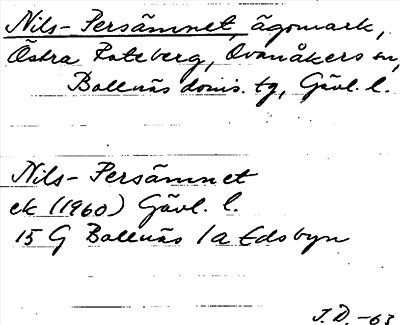 Nils-Persämnet, ägomark,
Östra Roteberg, Ovanåkers sn,
Bollnäs doms. tg, Gävl. l.
Nils-Persämnet
ek (1960) Gävl. l.
15 G Bollnäs 1a Edsbyn
J.D. -63